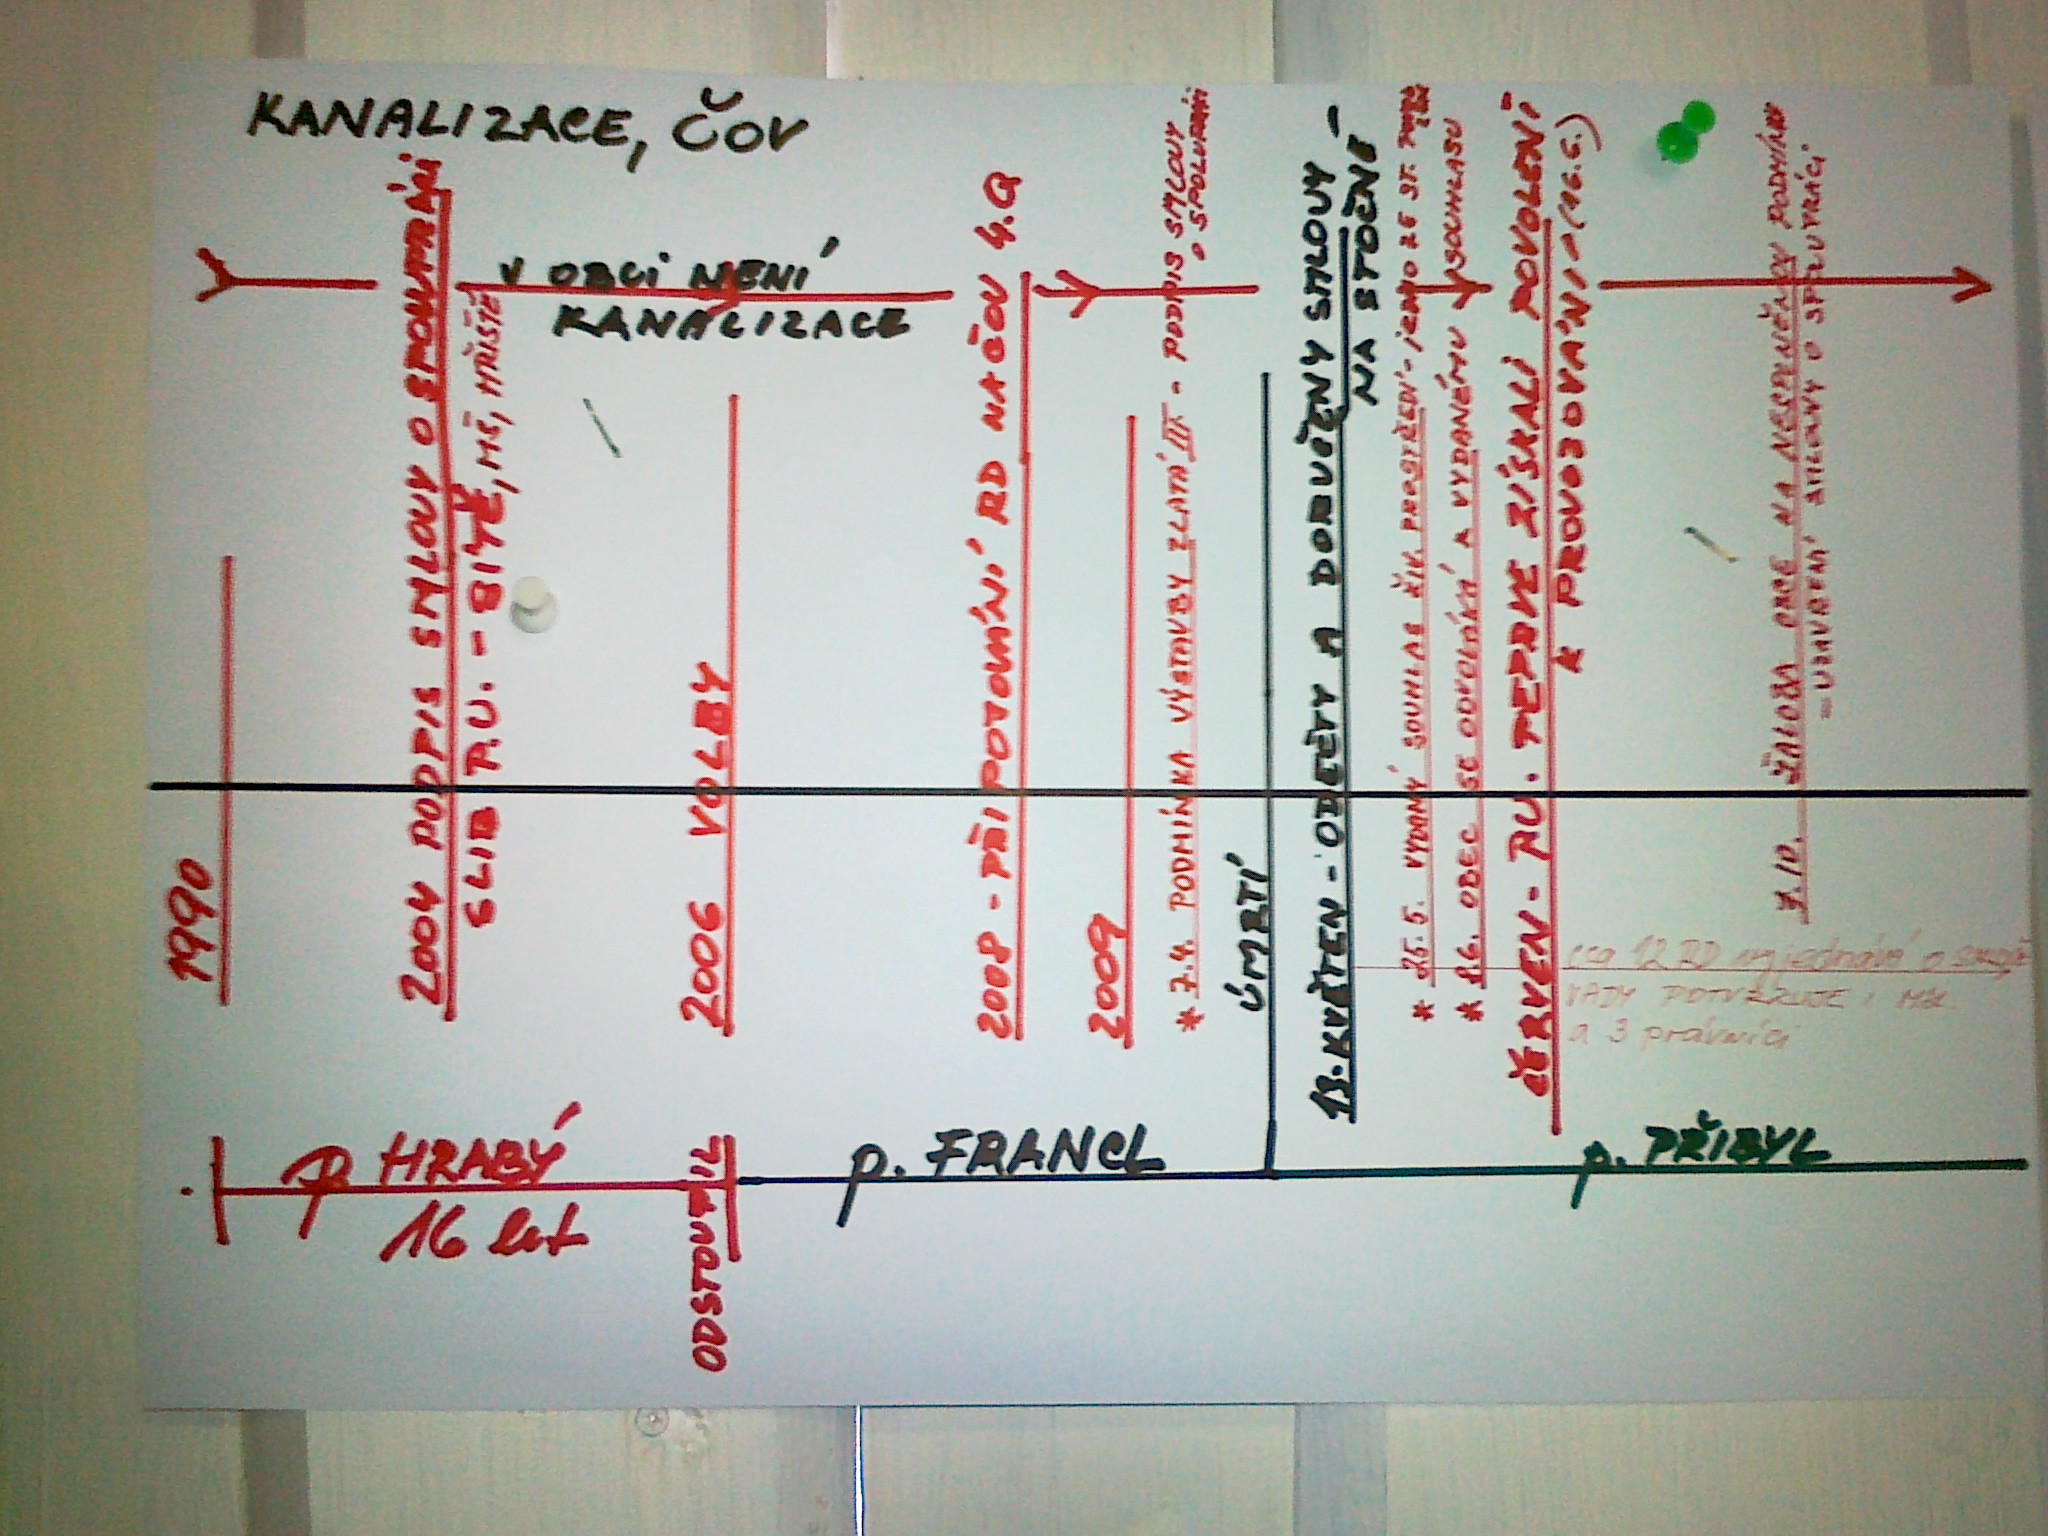 KANALIZACE, ČOV
V OBCI NENÍ
KANALIZACE
1990
2004 PODPIS SMLOUVY O SPOLUPRÁCI
SLIB A.U. - BITĚ, MŠ, HŘIŠTĚ
2006 VOLBY
2008 - PŘI POROVNÁNÍ RD NA ČOV 4.Q
2009
* 7.4. PODMÍNKA VÝSTAVBY ZLATÁ III. - PODPIS SMLOUVY
O SPOLUPRÁCI
ÚMRTÍ
13. KVĚTEN - ODEČTY A DORUČENY SMLOUVY -
NA STOČNÉ
* 25.5. VYDANÝ SOUHLAS ŽIV. PROSTŘEDÍ - JEDNO ZE ST.
* 16. OBEC SE ODVOLÁVÁ K VYDANÉMU SOUHLASU
ČERVEN - A.U. TEPRVE ZÍSKALI POVOLENÍ
K PROVOZOVÁNÍ (16.6.)
7.10. ŽALOBA OBCE NA NESPLNĚNOU PODMÍNKU
- UZAVŘENÍ SMLOUVY O SPOLUPRÁCI
cca 12 RD vyjednání o
VADY POTVRZUJE I
a 3 právníci
p. HRABÝ
16 let
ODSTOUPIL
p. FRANCL
p. PŘIBYL